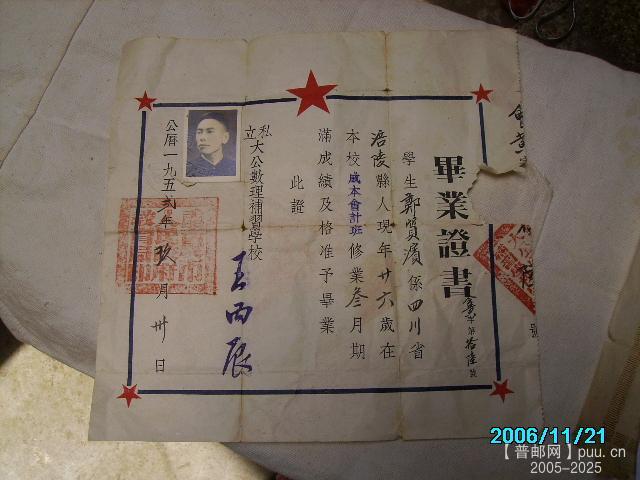 畢業證書
第拾陸號
學生鄭質濱係四川省
涪陵縣人現年廿六歲在
本校成本會計班修業叁月期
滿成績及格准予畢業
此證
私立大公數理補習學校
王西辰
公曆一九五貳年玖月卅日
2006/11/21
【普邮网】puu.cn
2005-2025